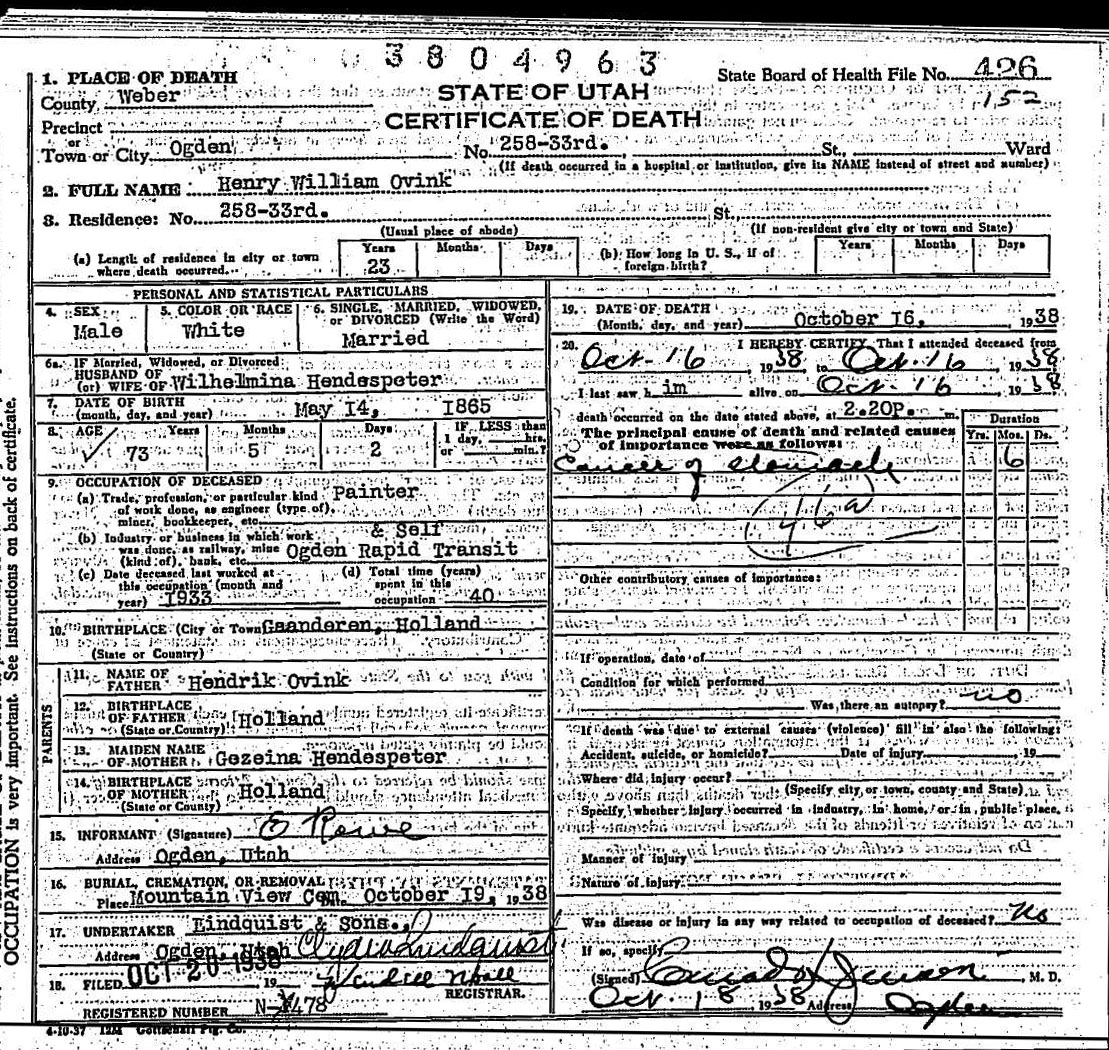 3804963
State Board of Health File No. 426
152
STATE OF UTAH
CERTIFICATE OF DEATH
1. PLACE OF DEATH
County Weber
Precinct
or
Town or City Ogden No. 258-33rd. St., Ward
(If death occurred in a hospital or institution, give its NAME instead of street and number)
2. FULL NAME Henry William Ovink
3. Residence: No. 258-33rd. St.
(Usual place of abode) (If non-resident give city or town and State)
(a) Length of residence in city or town where death occurred. Years 23 Months Days
(b) How long in U. S., if of foreign birth? Years Months Days
PERSONAL AND STATISTICAL PARTICULARS
4. SEX Male
5. COLOR OR RACE White
6. SINGLE, MARRIED, WIDOWED, or DIVORCED (Write the Word) Married
6a. IF Married, Widowed, or Divorced:
HUSBAND OF
(or) WIFE OF Wilhelmina Hendespeter
7. DATE OF BIRTH
(month, day, and year) May I4, I865
8. AGE Years 73 Months 5 Days 2 IF LESS than 1 day, hrs. or min.?
9. OCCUPATION OF DECEASED
(a) Trade, profession, or particular kind of work done, as engineer (type of), miner, bookkeeper, etc. Painter
(b) Industry or business in which work was done, as railway, mine (kind of), bank, etc. & Self Ogden Rapid Transit
(c) Date deceased last worked at this occupation (month and year) I933
(d) Total time (years) spent in this occupation 40
10. BIRTHPLACE (City or Town) Gaanderen, Holland
(State or Country)
PARENTS
11. NAME OF FATHER Hendrik Ovink
12. BIRTHPLACE OF FATHER (State or Country) Holland
13. MAIDEN NAME OF MOTHER Gezeina Hendespeter
14. BIRTHPLACE OF MOTHER (State or County) Holland
15. INFORMANT (Signature) E Rowe
Address Ogden, Utah
16. BURIAL, CREMATION, OR REMOVAL
Place Mountain View Cem. October I9, 1938
17. UNDERTAKER Lindquist & Sons.
Address Ogden, Utah Clyde Lindquist
18. FILED OCT 20 1938 19
REGISTRAR.
REGISTERED NUMBER 478
4-10-37 12M
19. DATE OF DEATH
(Month, day, and year) October I6, 1938
20. I HEREBY CERTIFY, That I attended deceased from
Oct-16, 1938, to Oct. 16, 1938
I last saw h im alive on Oct-16, 1938
death occurred on the date stated above, at 2.20P. m.
The principal cause of death and related causes of importance were as follows:
Duration
Yrs. Mos. Ds.
Cancer of Stomach 6
46a
Other contributory causes of importance:
If operation, date of
Condition for which performed
Was there an autopsy? no
If death was due to external causes (violence) fill in also the following:
Accident, suicide, or homicide? Date of injury, 19
Where did injury occur?
(Specify city or town, county and State)
Specify whether injury occurred in industry, in home, or in public place.
Manner of injury
Nature of injury
Was disease or injury in any way related to occupation of deceased? No
If so, specify
(Signed) Conrad H Jenson M. D.
Oct 18 1938 Address Ogden
OCCUPATION is very important. See instructions on back of certificate.